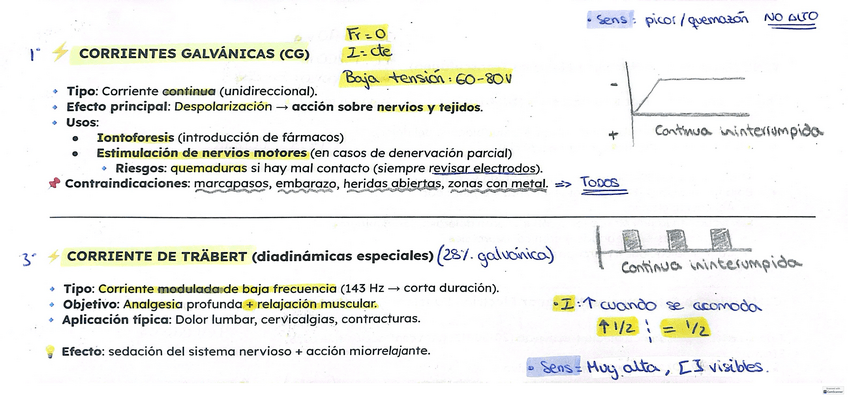 • Sens: picor/quemazón NO ALTO
Fr = 0
I = cte
Baja tensión: 60-80V
1º ⚡ CORRIENTES GALVÁNICAS (CG)
Tipo: Corriente continua (unidireccional).
Efecto principal: Despolarización → acción sobre nervios y tejidos.
Usos:
• Iontoforesis (introducción de fármacos)
• Estimulación de nervios motores (en casos de denervación parcial)
Riesgos: quemaduras si hay mal contacto (siempre revisar electrodos).
📌 Contraindicaciones: marcapasos, embarazo, heridas abiertas, zonas con metal. => TODOS
-
+
Continua ininterrumpida
3º ⚡ CORRIENTE DE TRÄBERT (diadinámicas especiales) (28% galvánica)
Tipo: Corriente modulada de baja frecuencia (143 Hz → corta duración).
Objetivo: Analgesia profunda + relajación muscular.
Aplicación típica: Dolor lumbar, cervicalgias, contracturas.
💡 Efecto: sedación del sistema nervioso + acción miorrelajante.
Continua ininterumpida
• I: ↑ cuando se acomoda
↑ 1/2 ¦ = 1/2
• Sens = Muy alta, [I visibles.